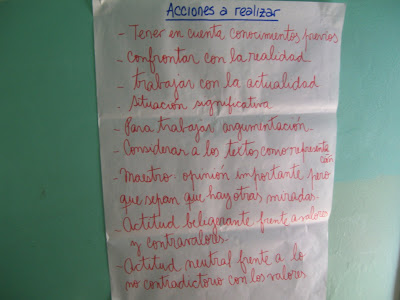 Acciones a realizar
- Tener en cuenta conocimientos previos
- Confrontar con la realidad
- trabajar con la actualidad
. Situación significativa
- Para trabajar argumentación.
- Considerar a los textos como representa
ción
- Maestro: opinión importante pero
que sepan que hay otras miradas.
- Actitud beligerante frente a valores
y contravalores.
- Actitud neutral frente a lo
no contradictorio con los valores